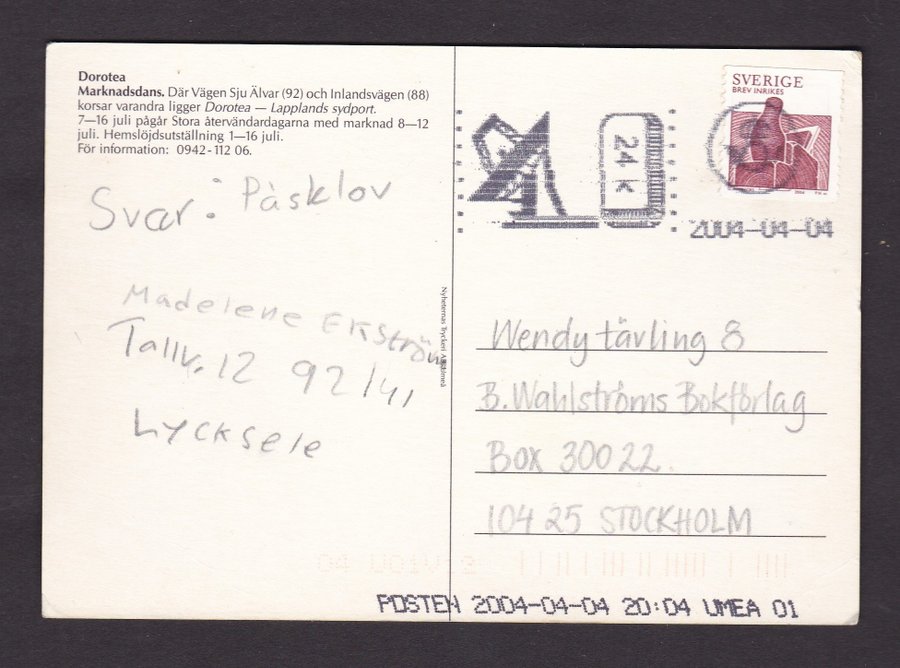 Dorotea
Marknadsdans. Där Vägen Sju Älvar (92) och Inlandsvägen (88)
korsar varandra ligger Dorotea — Lapplands sydport.
7—16 juli pågår Stora återvändardagarna med marknad 8—12
juli. Hemslöjdsutställning 1—16 juli.
För information: 0942-112 06.
Svar: Påsklov
Madelene Ekström
Tallv. 12 92141
Lycksele
Nyheternas Tryckeri AB Umeå
SVERIGE
BREV INRIKES
2004
24 K
2004-04-04
Wendy tävling 8
B. Wahlströms Bokförlag
Box 30022
104 25 STOCKHOLM
POSTEN 2004-04-04 20:04 UMEA 01